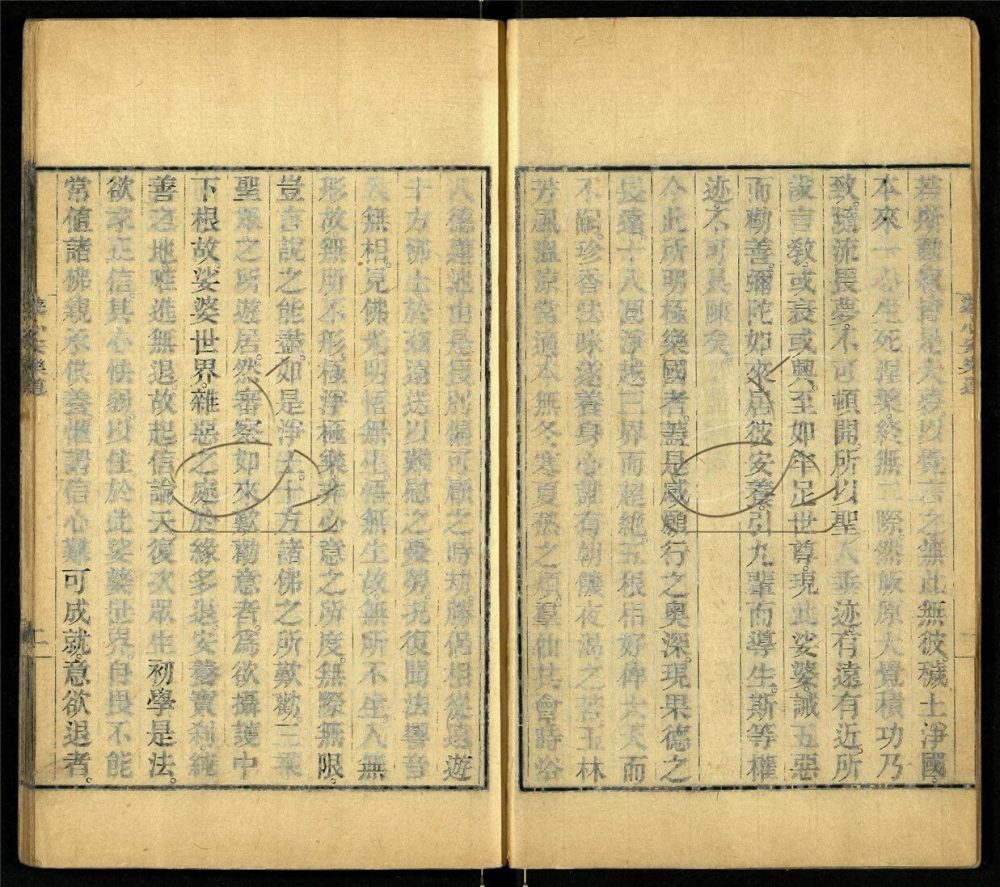 若斯動寂皆是大夢以覺言之無此無彼穢土淨國。
本來一心生死涅槃終無二際然皈原大覺積功乃
致。隨流長夢。不可頓開所以聖人垂迹有遠有近。所
設言敎或衰或興。至如牟尼世尊現此娑婆。誡五惡
而勸善。彌陀如來居彼安養引九輩而導生。斯等權
迹。不可具陳矣。
今此所明極樂國者。蓋是感願行之奥深。現果德之
長遠十八圓淨。越三界而超絕五根相好俾六天而
不嗣。珍香法味遂養身心誰有朝飢夜渴之苦玉林
芳風溫凉常適本無冬寒夏熱之煩。羣仙共會時浴
八德蓮池由是長別偏可厭之時劫勝侶相從遠遊
十方佛土於玆遠送以難慰之憂勞況復聞法響音
入無相。見佛光明悟無生。悟無生故無所不生。入無
形故無所不形。極淨極樂非心意之所度。無際無限。
豈言說之能盡。如是淨土。十方諸佛之所歎勸。三乘
聖衆之所遊居。然審察如來歎勸意者。爲欲攝護中
下根故。娑婆世界。雜惡之處於緣多退。安養寶刹。純
善之地唯進無退。故起信論云復次衆生初學是法。
欲求正信其心怯弱。以住於此娑婆世界自畏不能
常値諸佛親承供養懼謂信心難可成就。意欲退者。
遊心安樂道
二